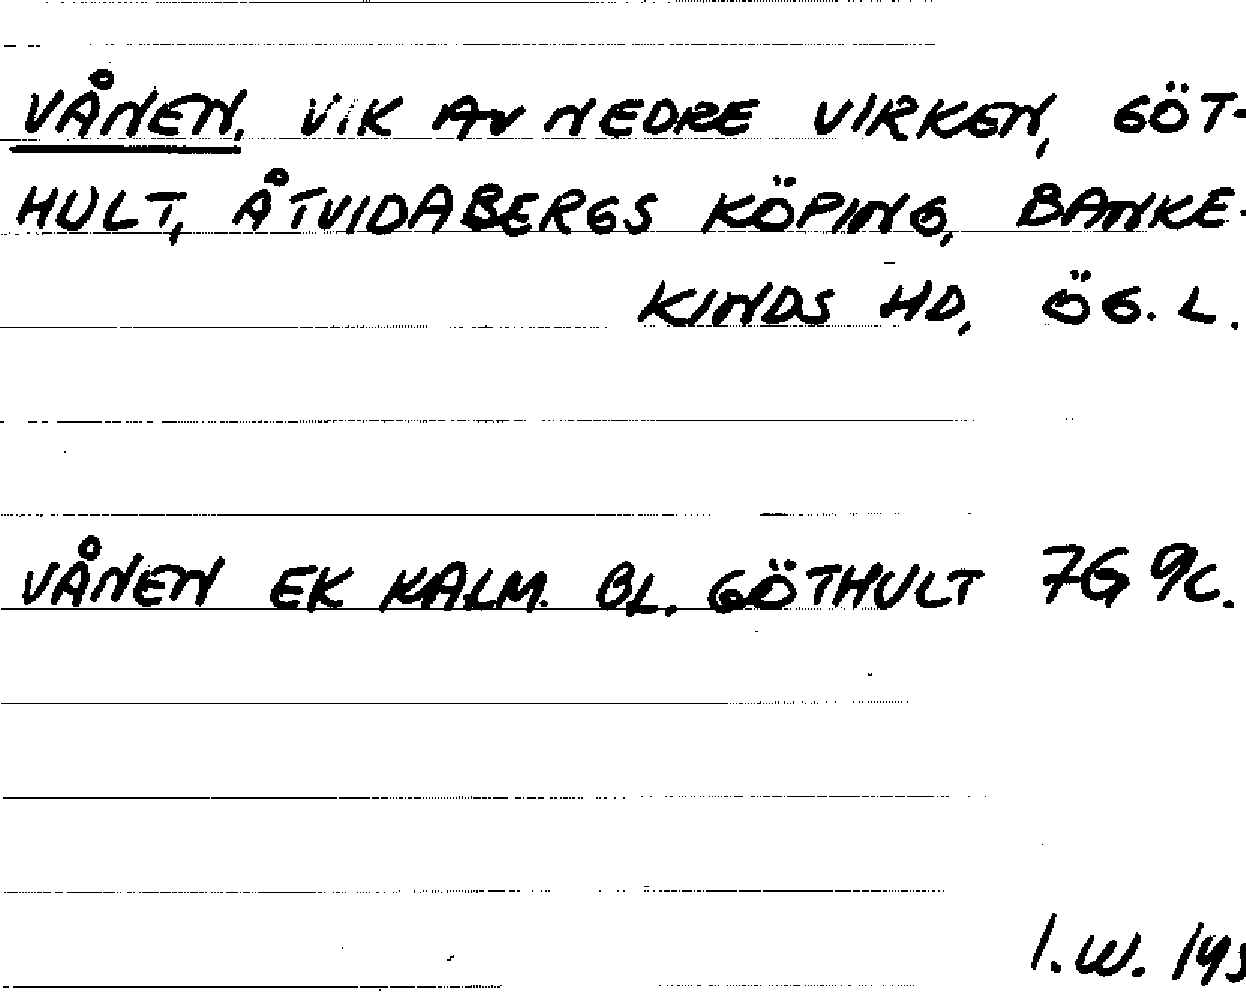 VÅNEN. VIK AV NEDRE VIRKEN, GÖT-
HULT, ÅTVIDABERGS KÖPING, BANKE-
KINDS HD, ÖG. L.
VÅNEN EK KALM. BL. GÖTHULT 7G 9c.
I.W.